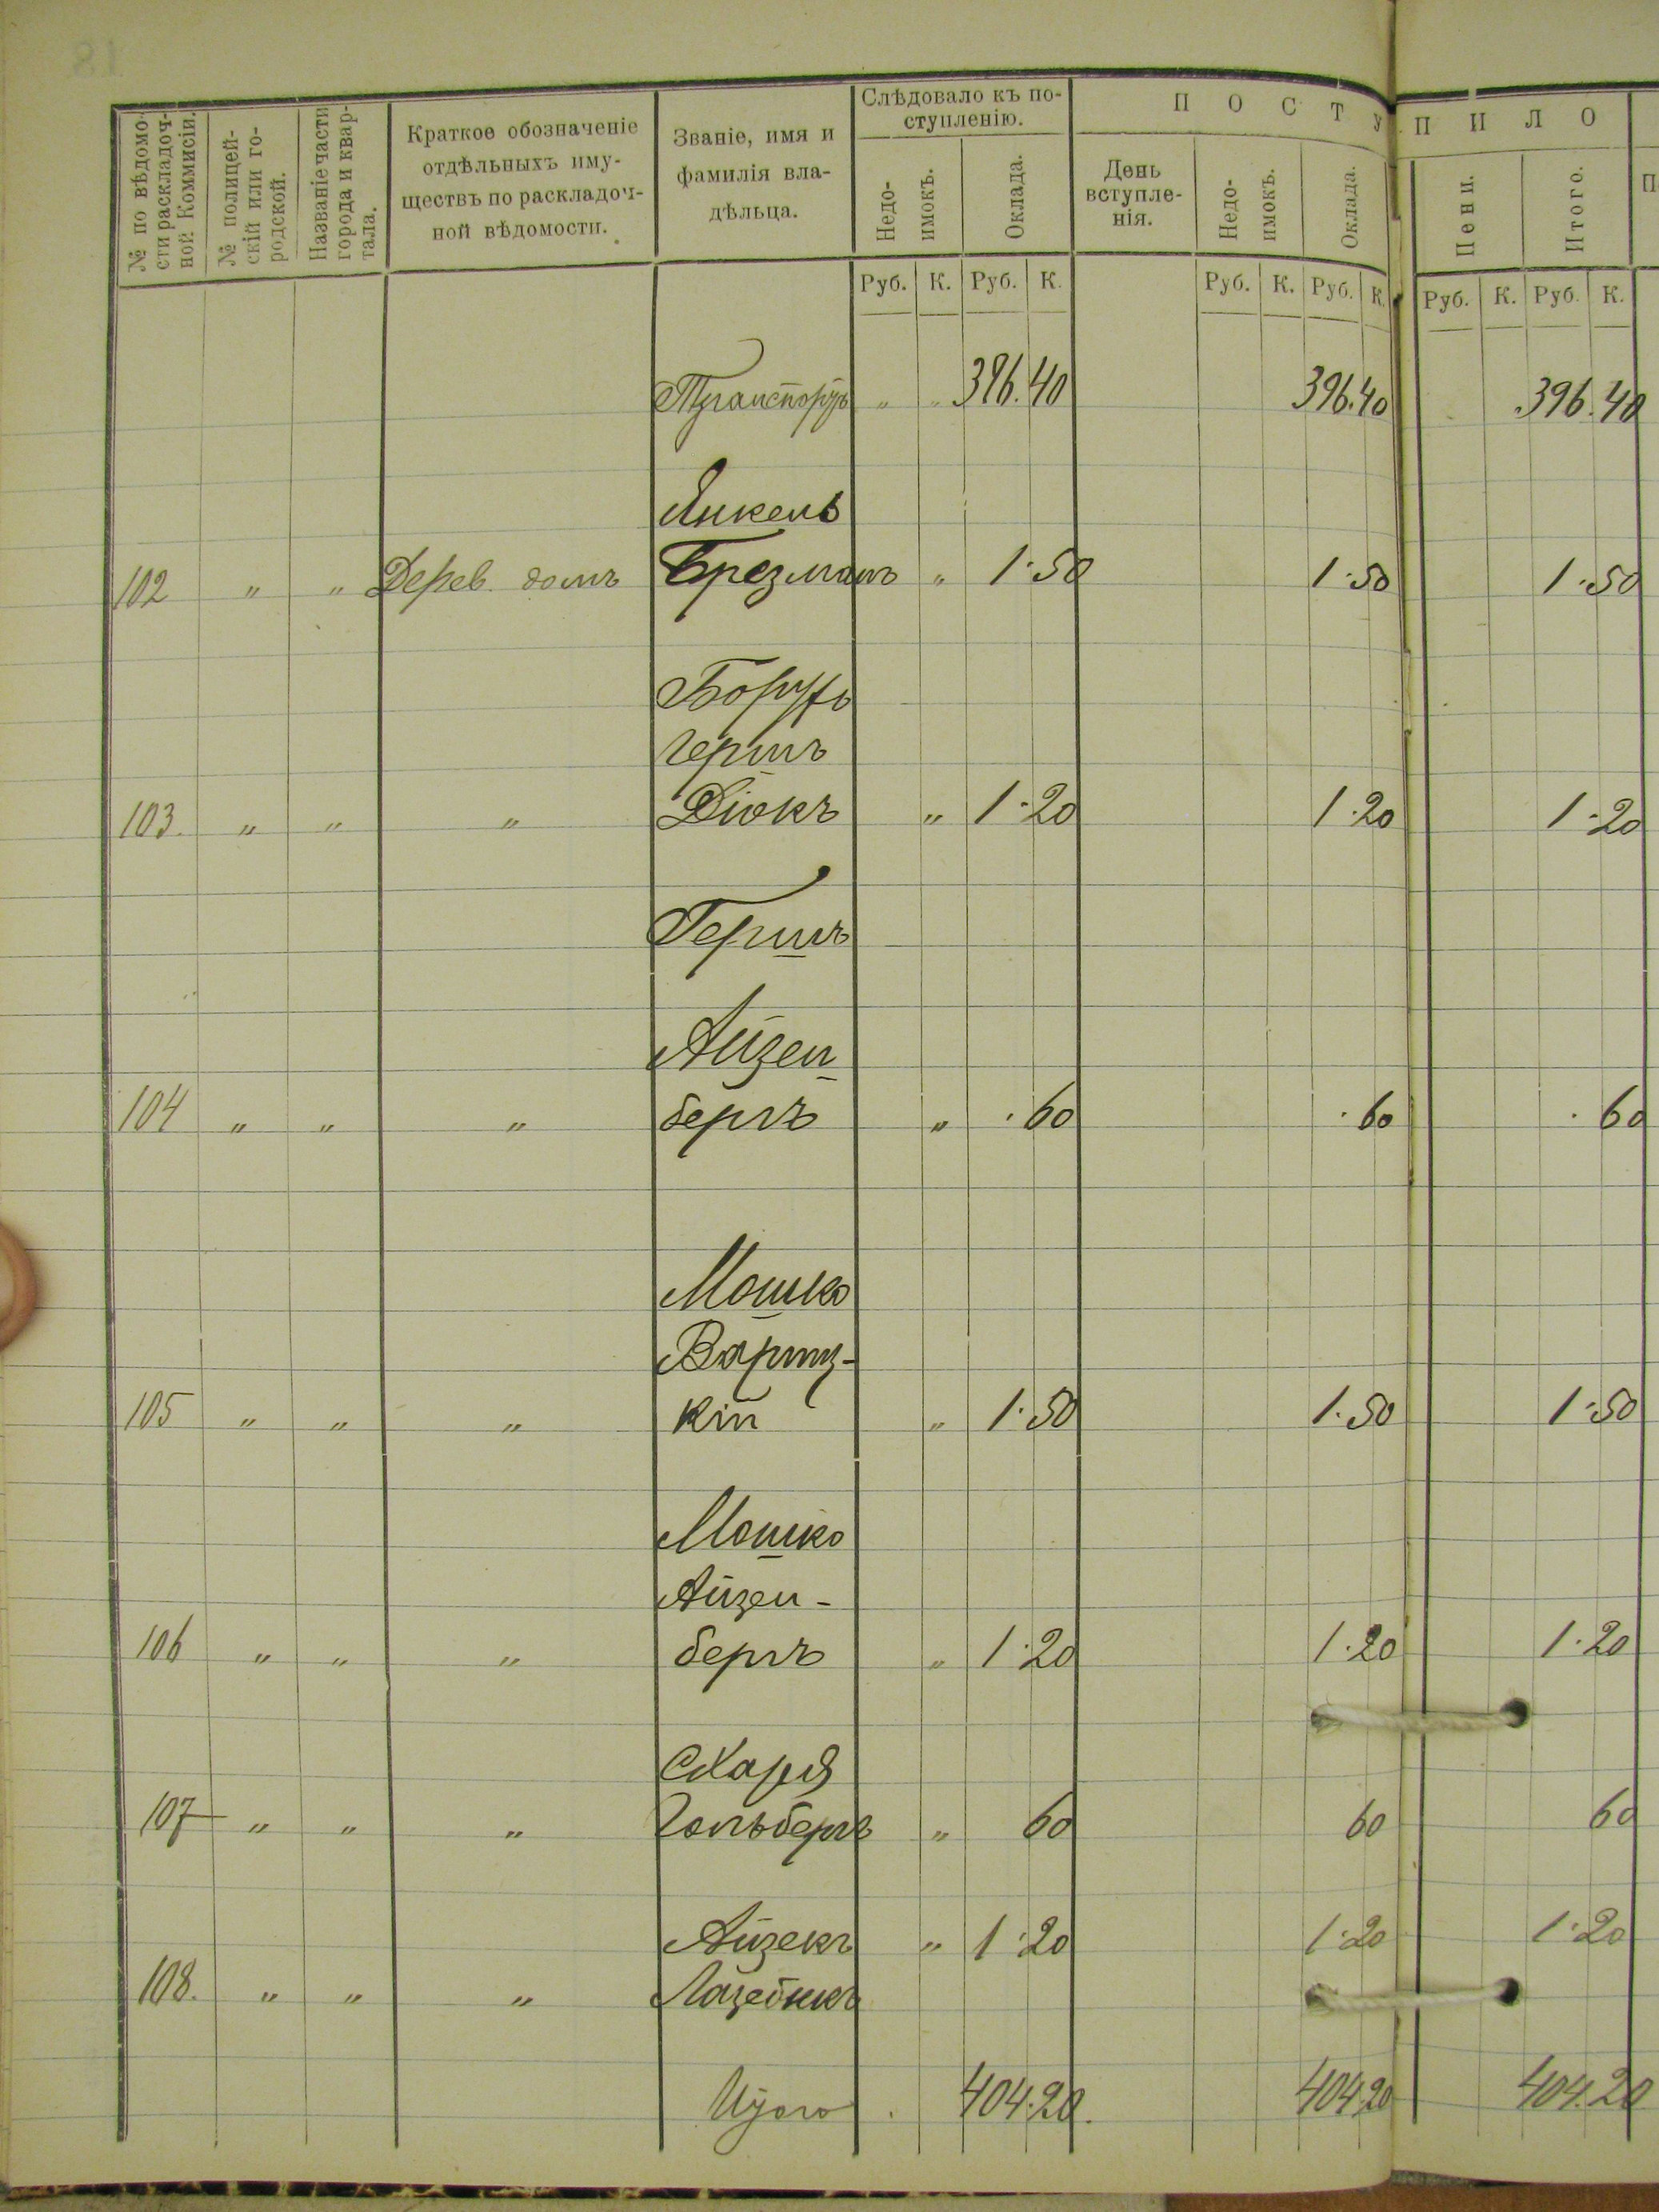 81
№ по вѣдомости раскладочной Коммисіи.
№ полицейскій или городской.
Названіе части города и квартала.
Краткое обозначеніе отдѣльныхъ имуществъ по раскладочной вѣдомости.
Званіе, имя и фамилія владѣльца.
Слѣдовало къ поступленію.
Недоимокъ.
Оклада.
П О С Т У П И Л О
День вступленія.
Недоимокъ.
Оклада.
Пени.
Итого.
Руб. К. Руб. К. Руб. К. Руб. К. Руб. К. Руб. К.
Транспортъ " " 396.40 396.40 396.40
Янкель
102 " " Дерев. домъ Брезманъ " 1.50 1.50 1.50
Борухъ
Гершъ
103. " " " Діокъ " 1.20 1.20 1.20
Гершъ
Айзен
104 " " " бергъ " .60 .60 .60
Мошко
Варшиц-
105 " " " кій " 1.50 1.50 1.50
Мошко
Айзен-
106 " " " бергъ " 1.20 1.20 1.20
Схарія
107 " " " Гольбергъ " 60 60 60
Айзекъ " 1.20 1.20 1.20
108. " " " Лазебникъ
Итого . 404.20. 404.20 404.20